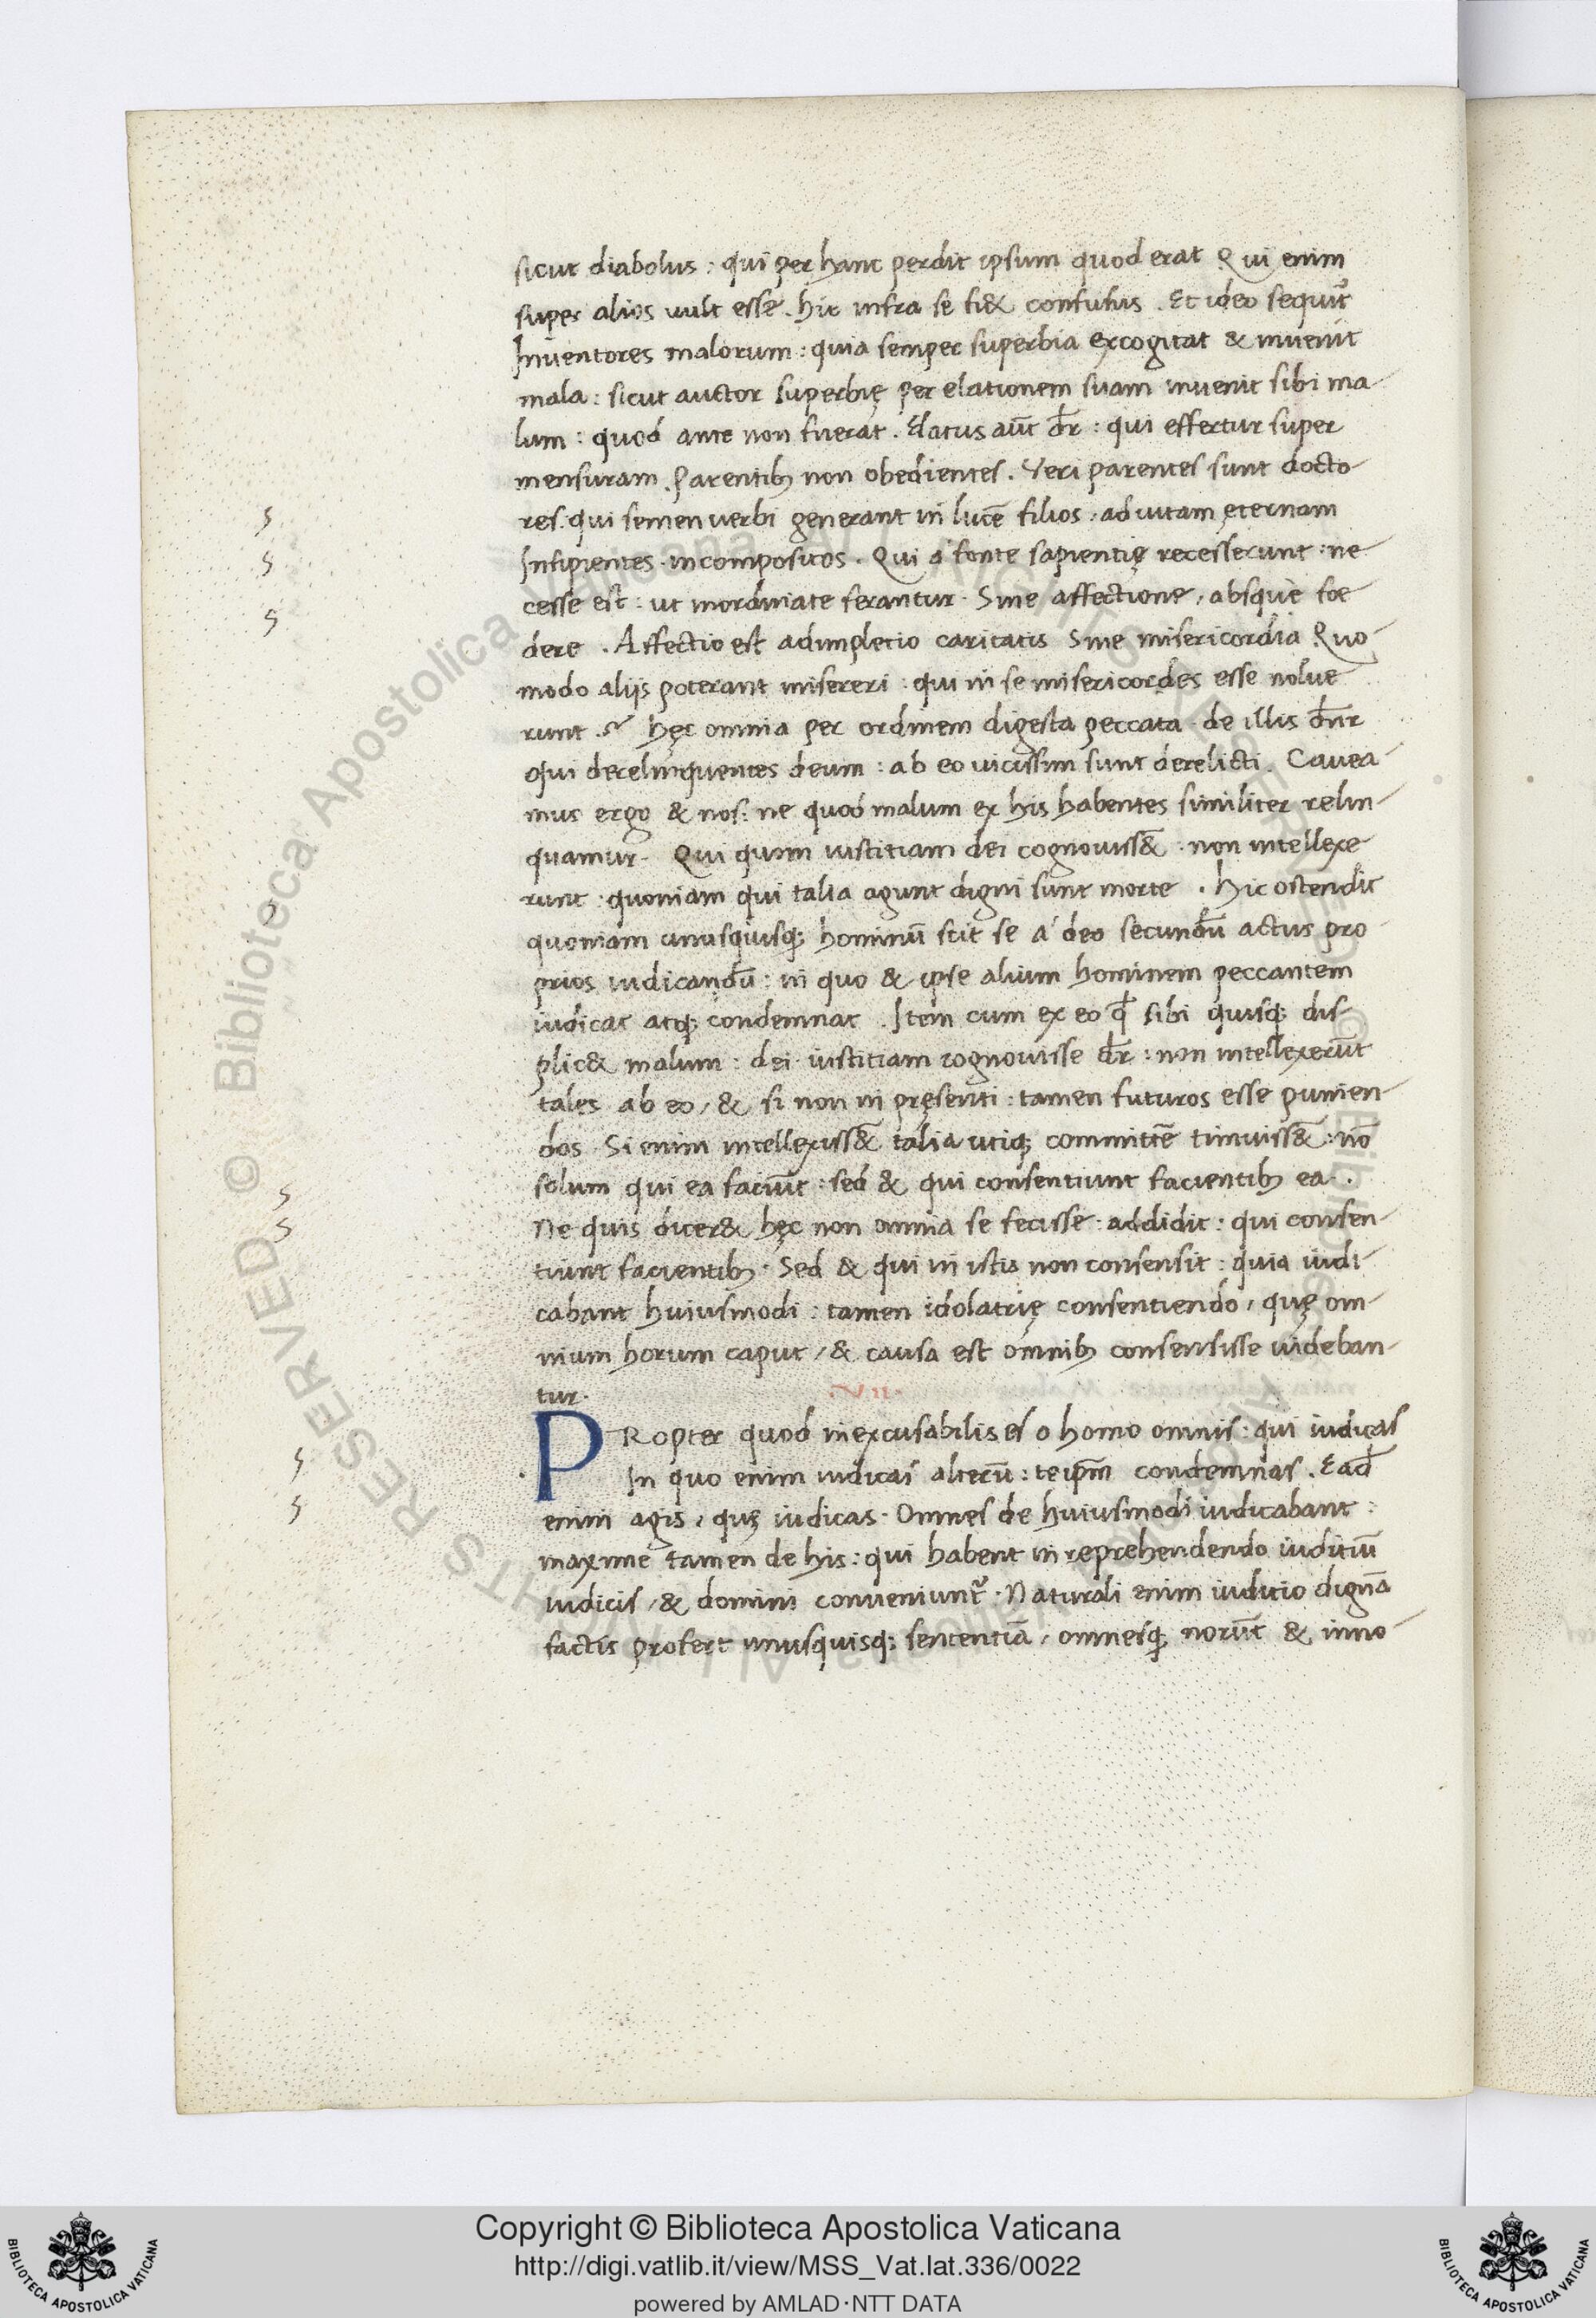 sicut diabolus : qui per hanc perdit ipsum quod erat Qui enim
super alios uult esse . hic infra se fi& confusus . Et ideo sequit᷑
Inuentores malorum : quia semper superbia excogitat & inuenit
mala : sicut auctor superbię per elationem suam inuenit sibi ma-
lum : quod ante non fuerat . Elatus aut̄ dr̄ : qui effertur super
mensuram . Parentibꝫ non obedientes . Veri parentes sunt docto-
res : qui semen uerbi generant in lucē filios : ad uitam ęternam
Insipientes . incompositos . Qui a fonte sapientię recesserunt : ne-
cesse est : ut inordinate ferantur . Sine affectione , absque foe
dere . Affectio est adimpletio caritatis Sine misericordia Quo-
modo alijs poterant misereri : qui in se misericordes esse nolue
runt . ? hęc omnia per ordinem digesta peccata . de illis dn̄r
qui derelinquentes deum : ab eo uicissim sunt derelicti . Cauea-
mus ergo & nos : ne quod malum ex his habentes similiter relin-
quamur . Qui quom iustitiam dei cognouiss&̄ . non intellexe
runt : quoniam qui talia agunt digni sunt morte . hic ostendit
quoniam unusquisqꝫ hominū scit se a deo secundū actus pro-
prios iudicandū : in quo & ipse alium hominem peccantem
iudicat atqꝫ condemnat . Item cum ex eo qd̄ sibi quisqꝫ dis-
plic& malum : dei iustitiam cognouisse dr̄ : non intellexerūt
tales ab eo , & si non in pręsenti : tamen futuros esse punien-
dos . Si enim intellexiss&̄ talia utiqꝫ committē timuiss&̄ : nō
solum qui ea faciūt : sed & qui consentiunt facientibꝫ ea .
Ne quis dicer& hęc non omnia se fecisse : addidit : qui consen-
tiunt facientibꝫ . Sed & qui in istis non consensit : quia iudi-
cabant huiusmodi : tamen idolatrię consentiendo , quę om-
nium horum caput , & causa est omnibꝫ consensisse uideban-
tur .
.VII.
PRopter quod inexcusabilis es o homo omnis : qui iudicas
In quo enim iudicas alterū : teip̄m condemnas . Ead̄
enim agis , quę iudicas . Omnes de huiusmodi iudicabant :
maxime tamen de his : qui habent in reprehendendo iuditiū
iudicis , & domini conueniunt᷑ . Naturali enim iuditio dignā
factis profert unusquisqꝫ sententiā , omnesqꝫ norūt & inno-
Copyright © Biblioteca Apostolica Vaticana
http://digi.vatlib.it/view/MSS_Vat.lat.336/0022
powered by AMLAD·NTT DATA
BIBLIOTECA APOSTOLICA VATICANA
BIBLIOTECA APOSTOLICA VATICANA